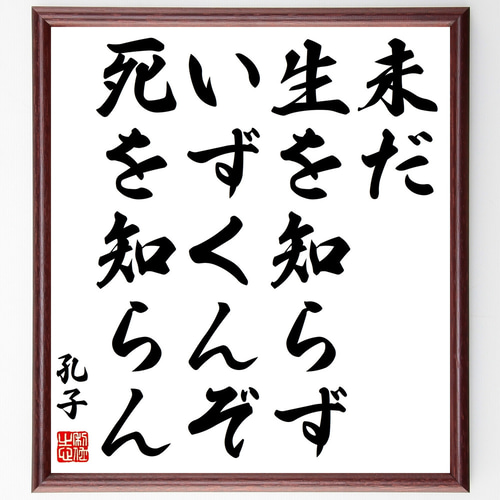 未だ
生を知らず
いずくんぞ
死を知らん
孔子